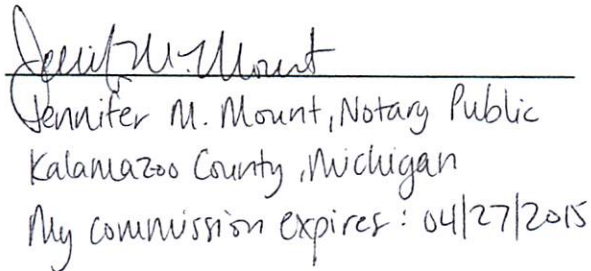 Jennifer M. Mount
Jennifer M. Mount, Notary Public
Kalamazoo County, Michigan
My commission expires: 04/27/2015